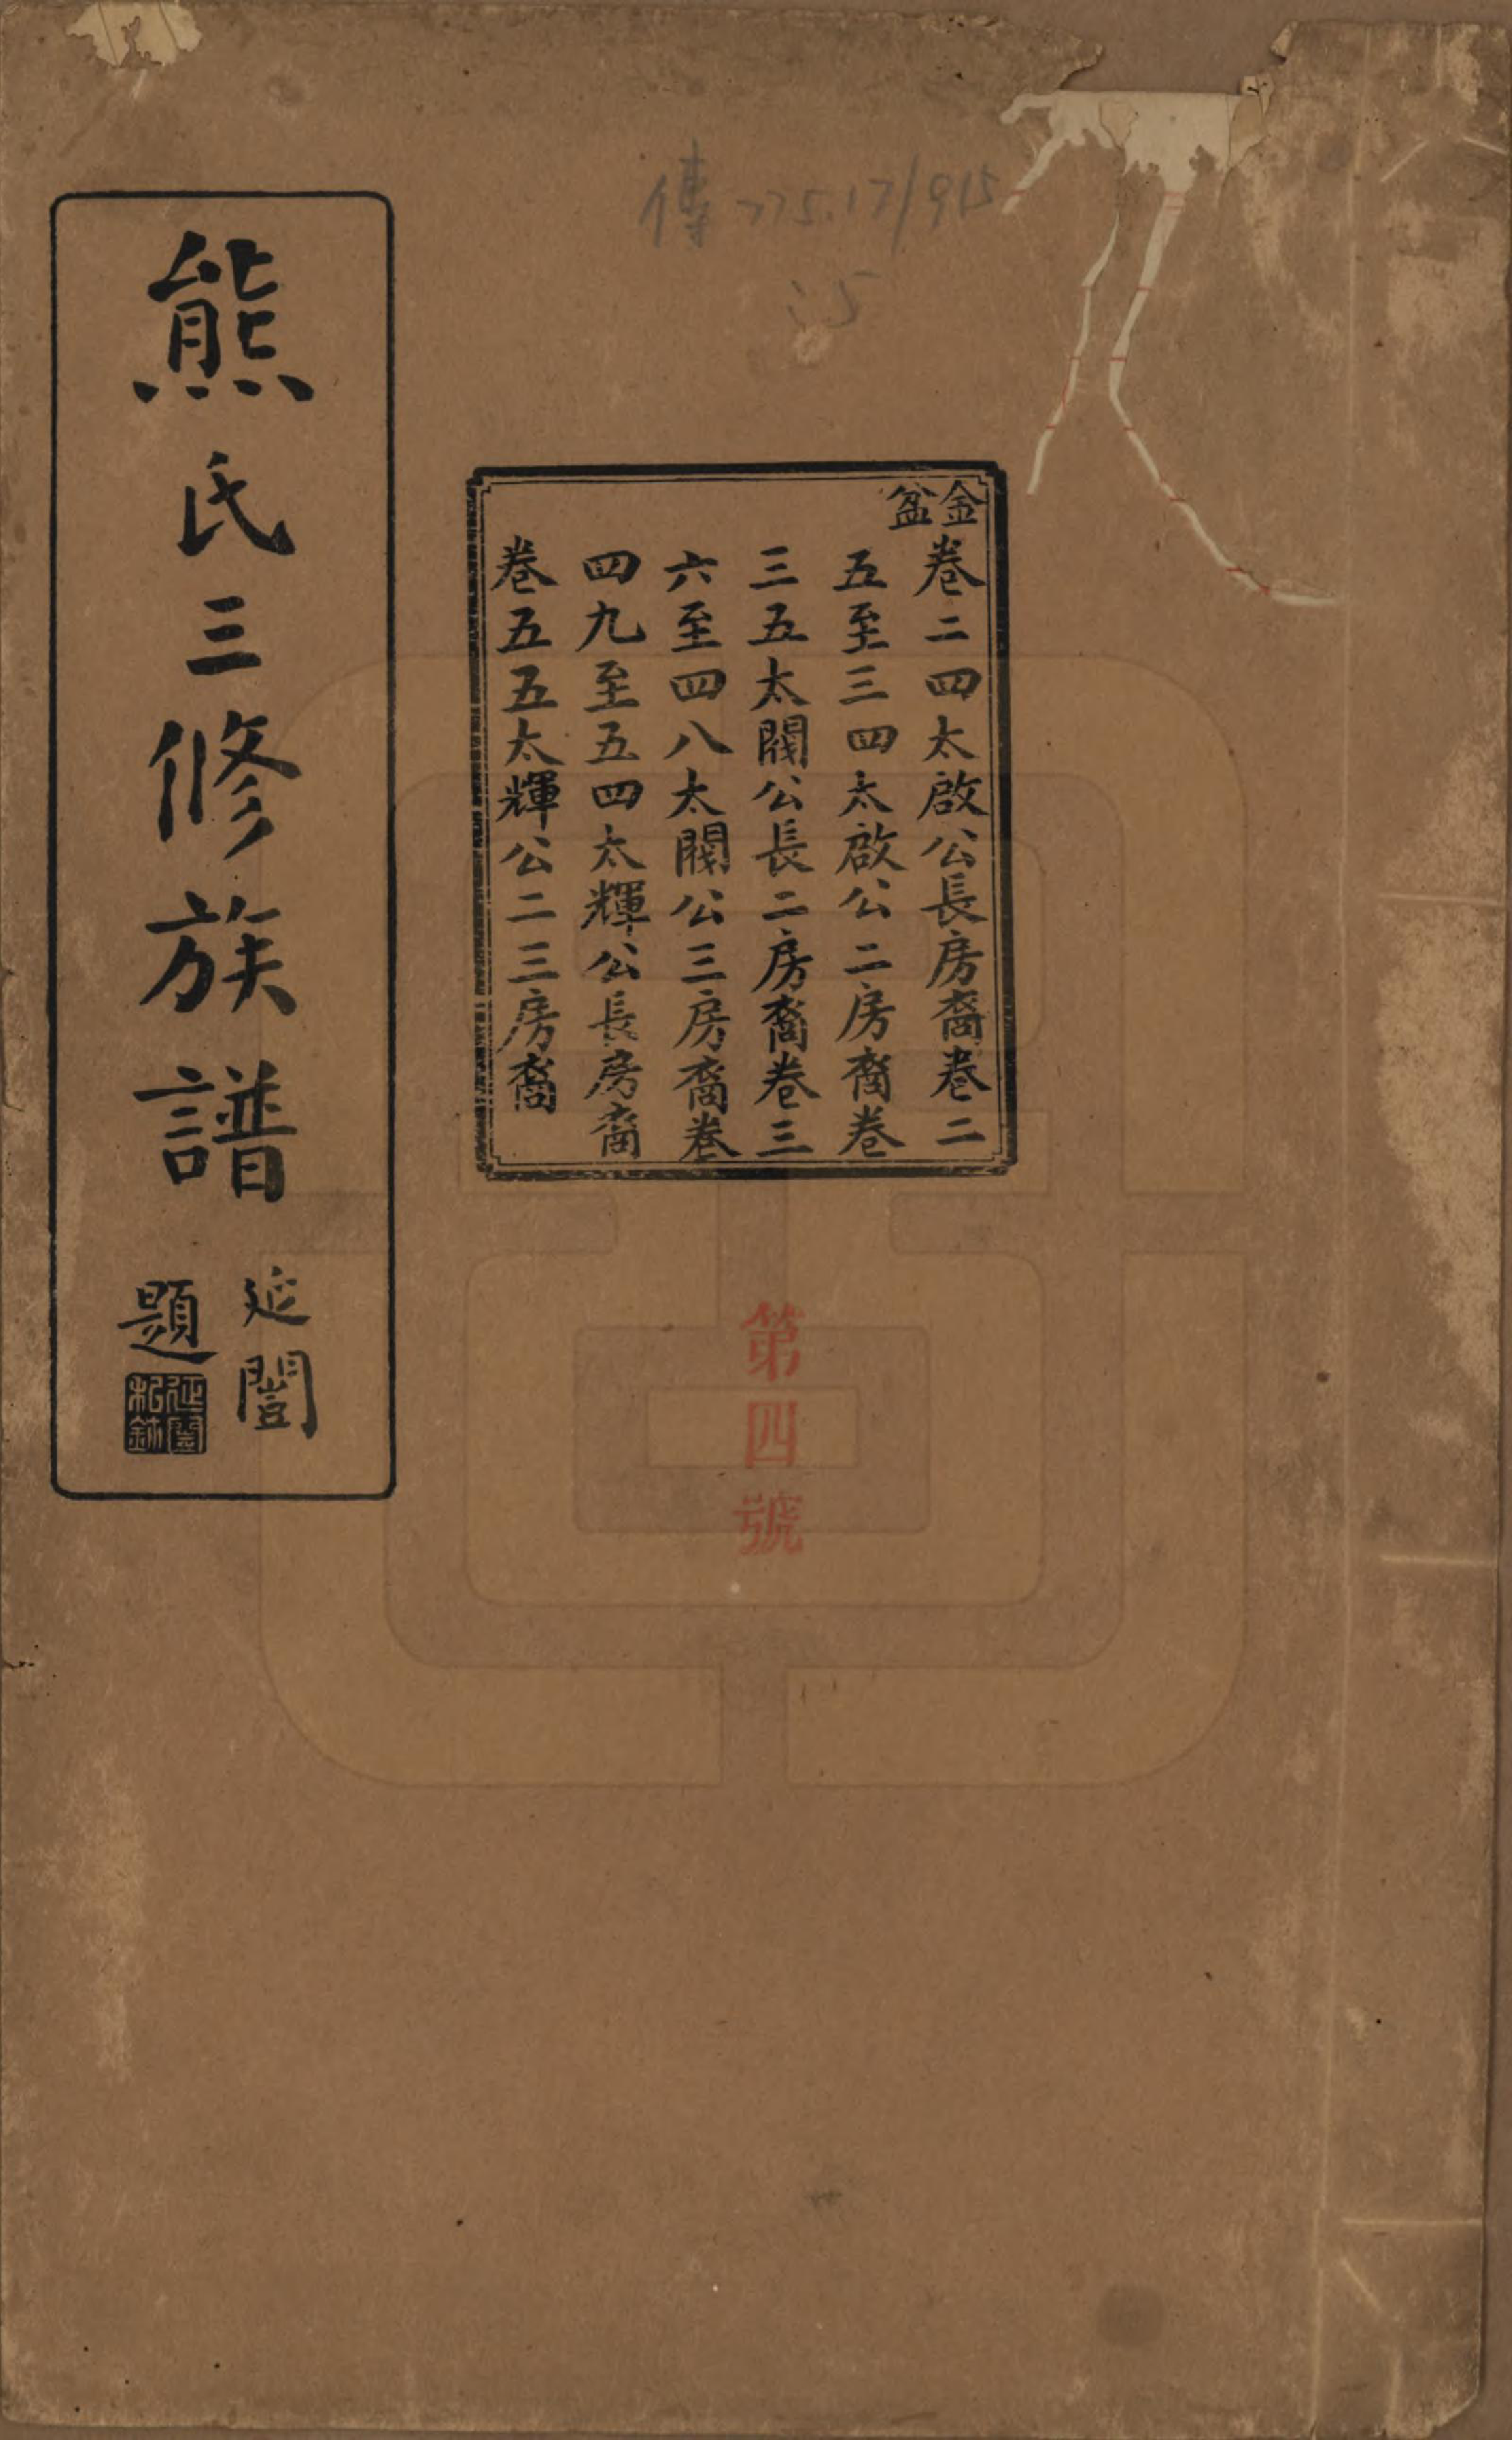 傳 775.17/915
:5
金盆
卷二四太啟公長房裔卷二
五至三四太啟公二房裔卷
三五太閥公長二房裔卷三
六至四八太閥公三房裔卷
四九至五四太輝公長房裔
卷五五太輝公二三房裔
熊氏三修族譜
延闓
題
延闓
第四號